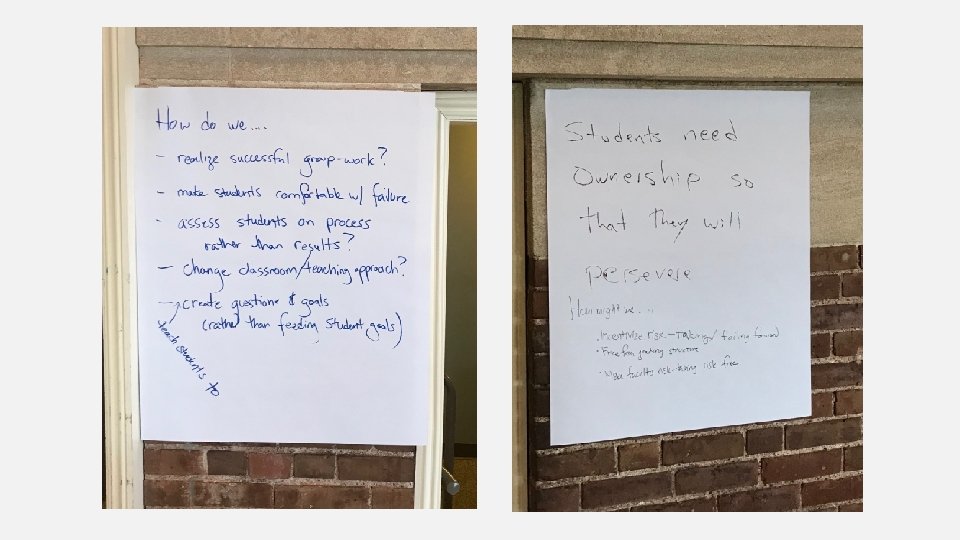 How do we....
- realize successful group-work?
- make students comfortable w/ failure
- assess students on process
rather than results?
- change classroom/teaching approach?
- create questions & goals
(rather than feeding student goals)
teach students to
Students need
ownership so
that they will
persevere
How might we....
· Incentivize risk-taking/failing forward
· Free from grading structure
· faculty risk-taking risk free